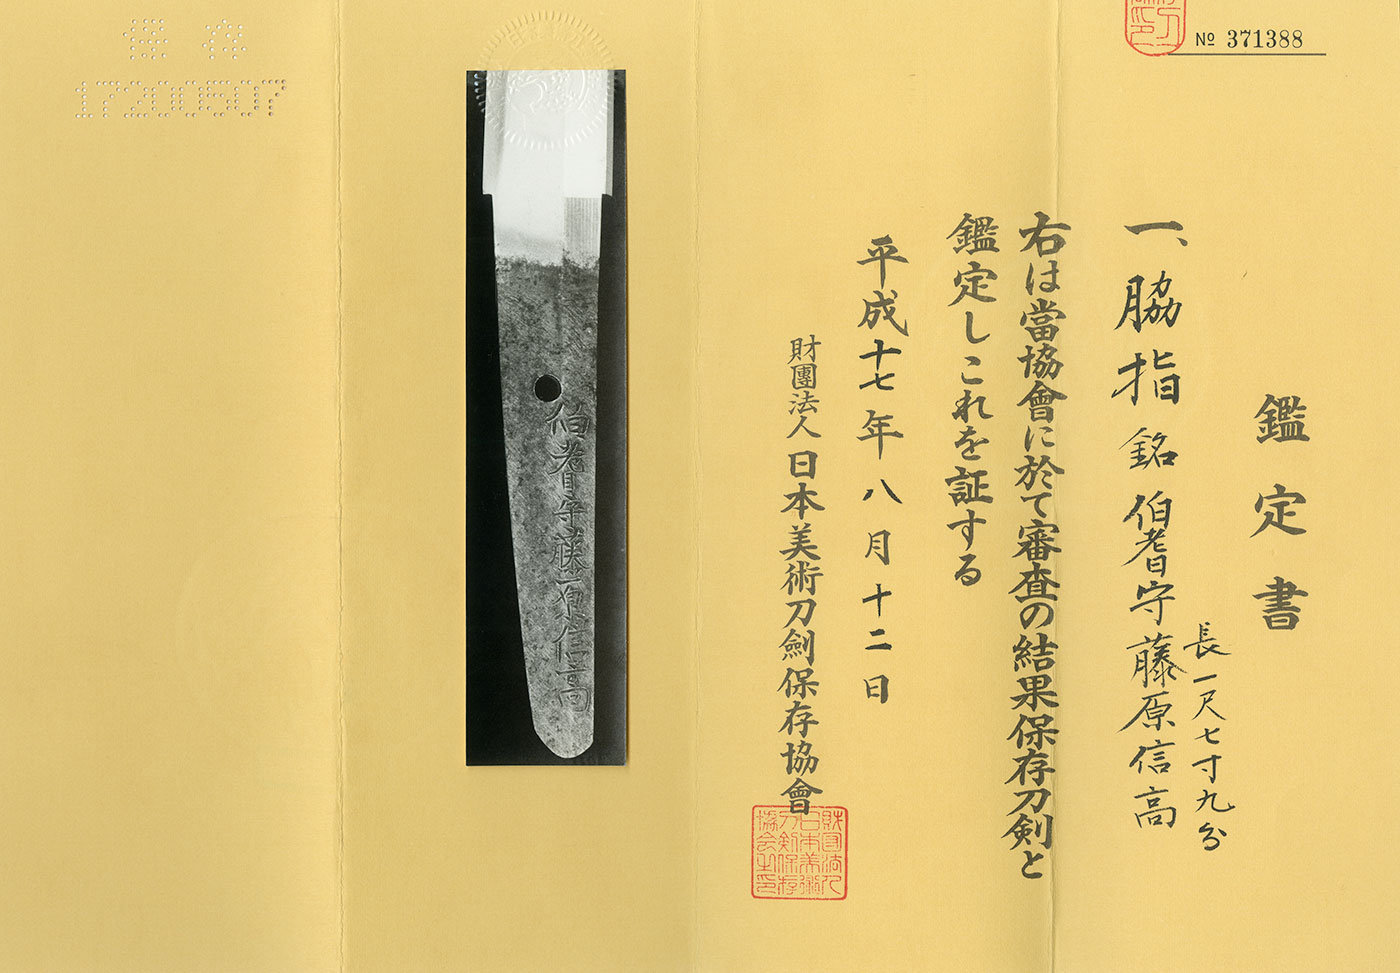 № 371388
鑑定書
一、脇指 銘 伯耆守藤原信高
長一尺七寸九分
右は當協會に於て審査の結果保存刀剣と
鑑定しこれを証する
平成十七年八月十二日
財團法人日本美術刀劍保存協會
財団法人
日本美術
刀剣保存
協会之印
伯耆守藤原信高
保存
17200507